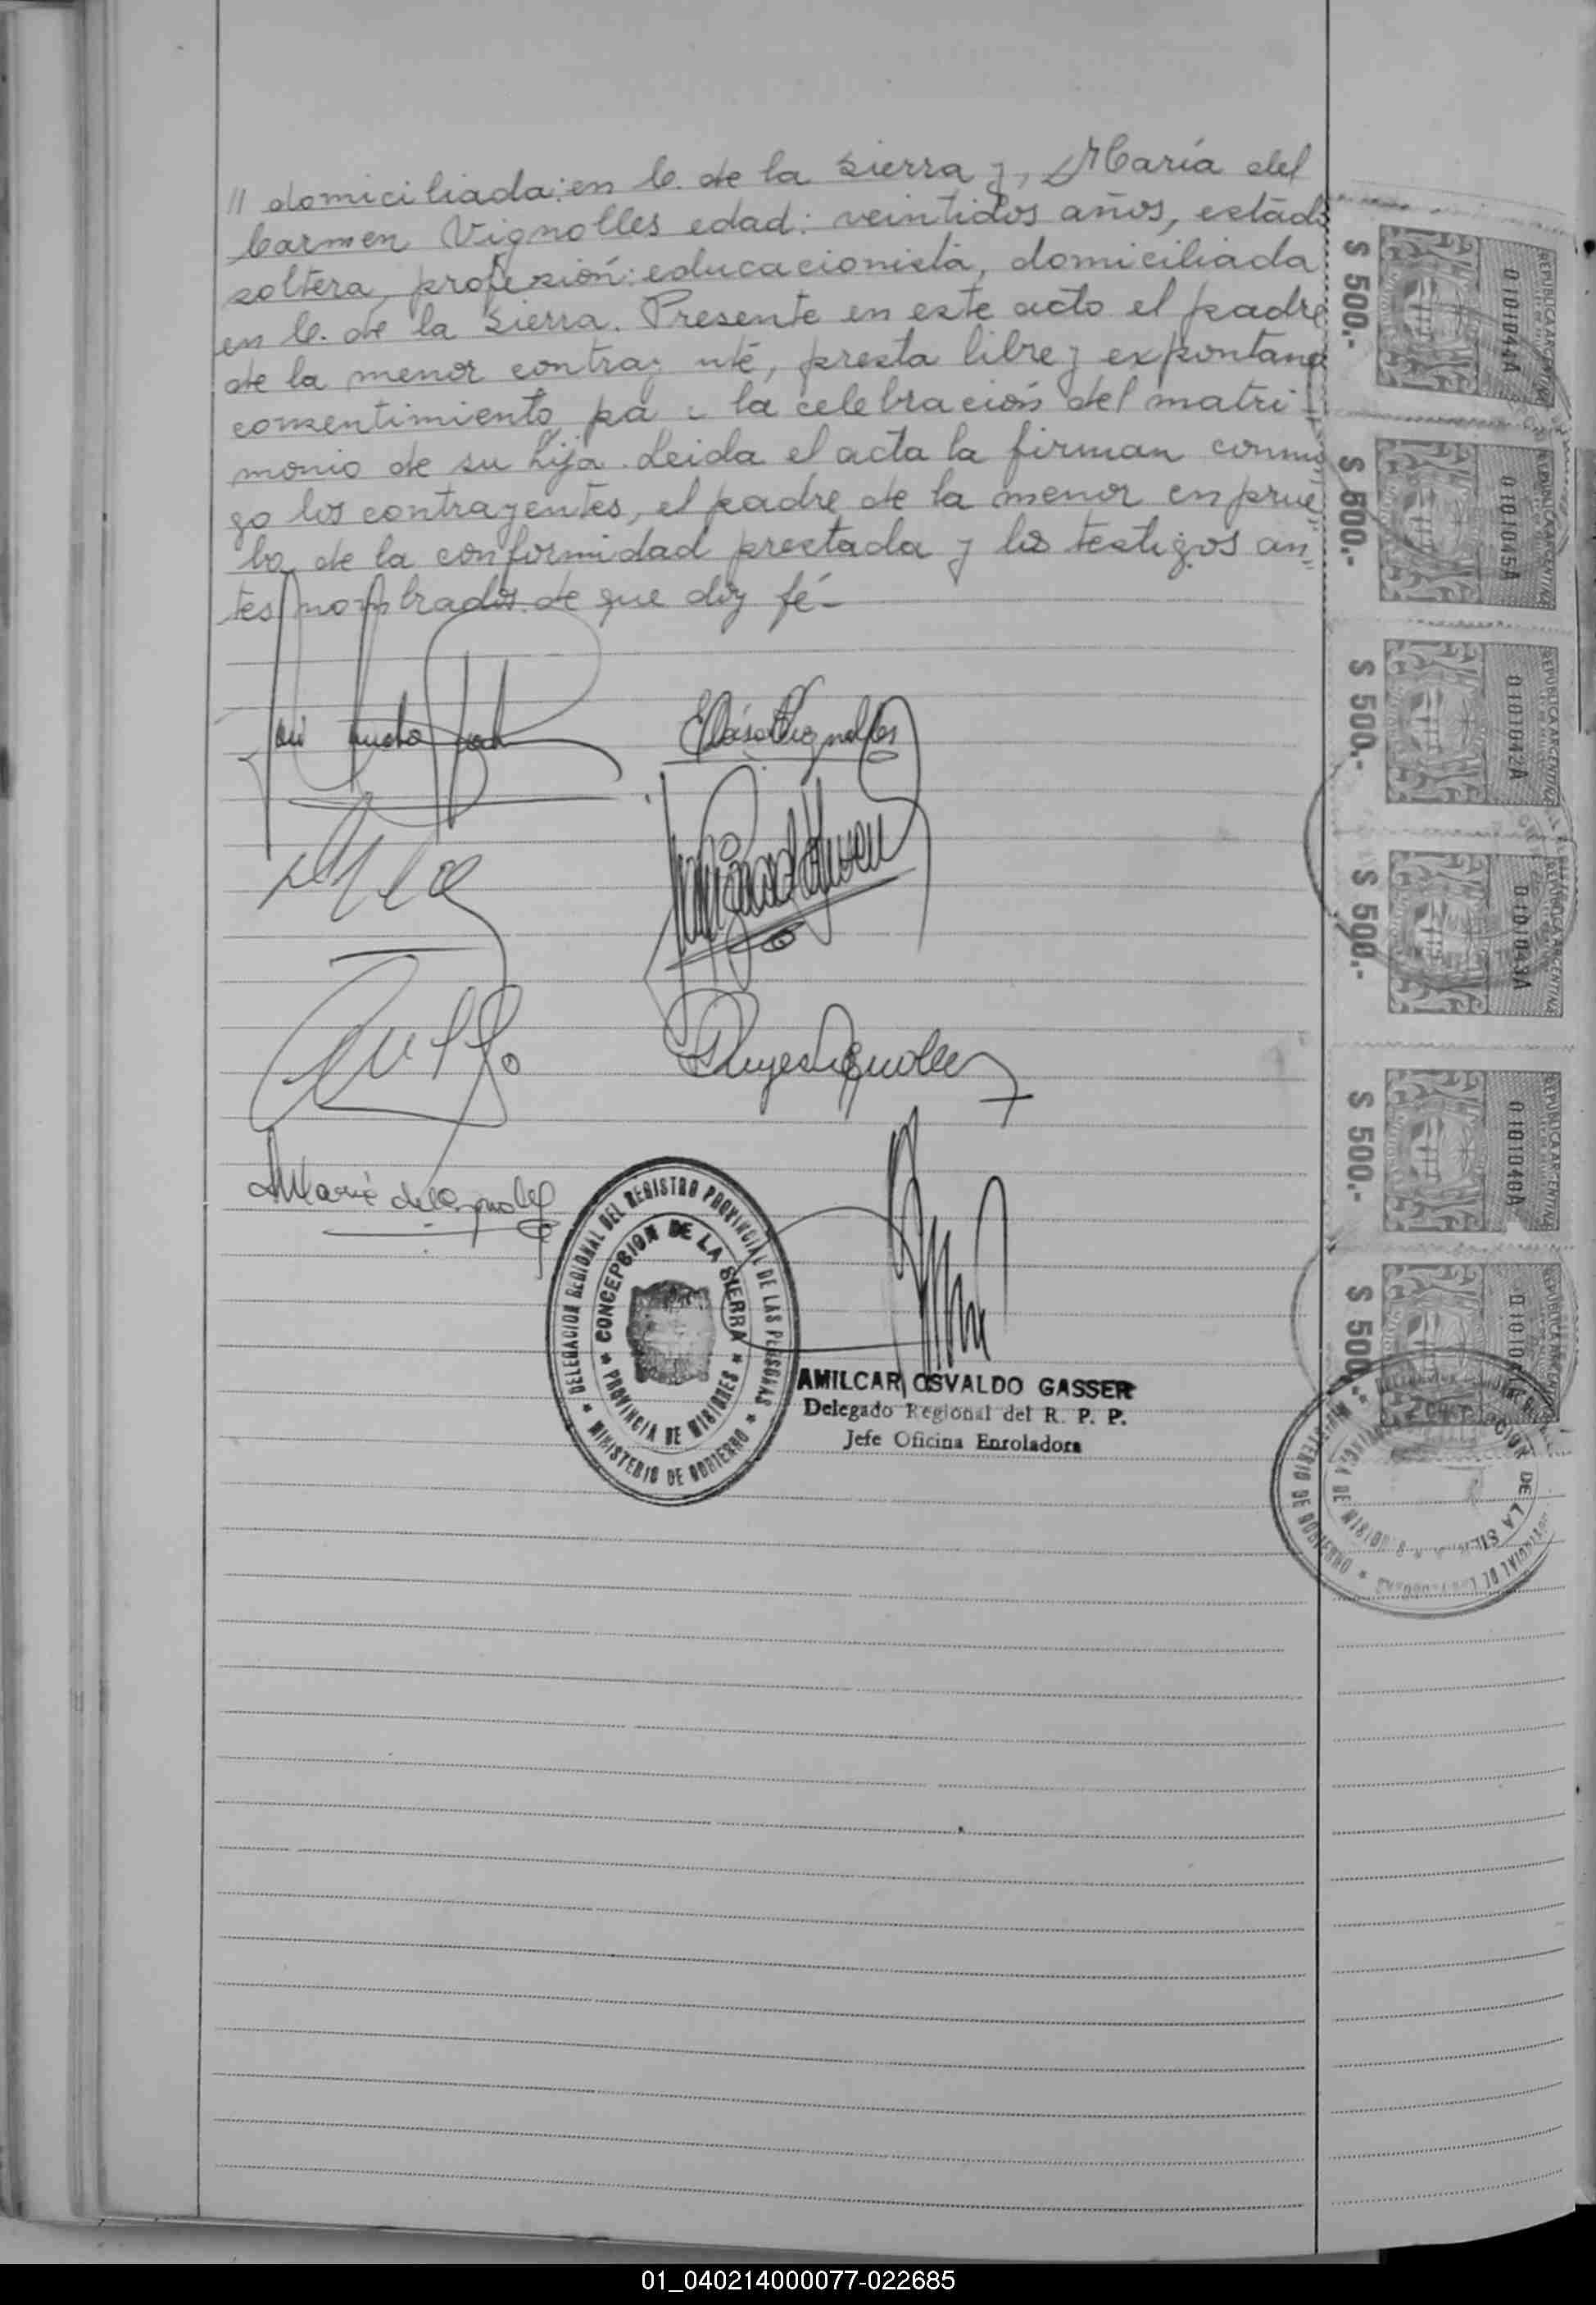 // domiciliada: en C. de la Sierra y, María del
Carmen Vignolles edad: veintidos años, estado
soltera, profesión: educacionista, domiciliada
en C. de la Sierra. Presente en este acto el padre
de la menor contray nte, presta libre y expontaneo
consentimiento pa a la celebración del matri-
monio de su hija. Leida el acta la firman conmi
go los contrayentes, el padre de la menor en prue
ba de la conformidad prestada y los testigos an
tes nombrados de que doy fé-
DELEGACION REGIONAL DEL REGISTRO PROVINCIAL DE LAS PERSONAS
* MINISTERIO DE GOBIERNO *
CONCEPCION DE LA SIERRA
* PROVINCIA DE MISIONES *
AMILCAR OSVALDO GASSER
Delegado Regional del R. P. P.
Jefe Oficina Enroladora
$ 500.-
0101044A
REPUBLICA ARGENTINA
$ 500.-
0101045A
REPUBLICA ARGENTINA
$ 500.-
0101042A
REPUBLICA ARGENTINA
$ 500.-
0101043A
REPUBLICA ARGENTINA
$ 500.-
0101040A
REPUBLICA ARGENTINA
$ 500.-
DE LA SIERRA
MINISTERIO DE GOBIERNO *
01_040214000077-022685